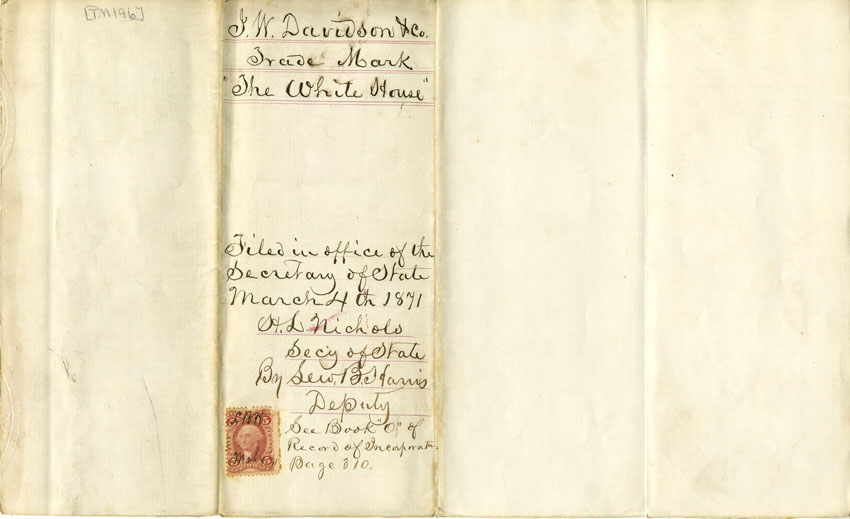 [TM196]
J. W. Davidson & Co.
Trade Mark
"The White House"
Filed in office of the
Secretary of State
March 4th 1871
H. L. Nichols
Secy of State
By Lew. B. Harris
Deputy
See Book "O" of
Record of Incorporat.
Page 310.
5 5